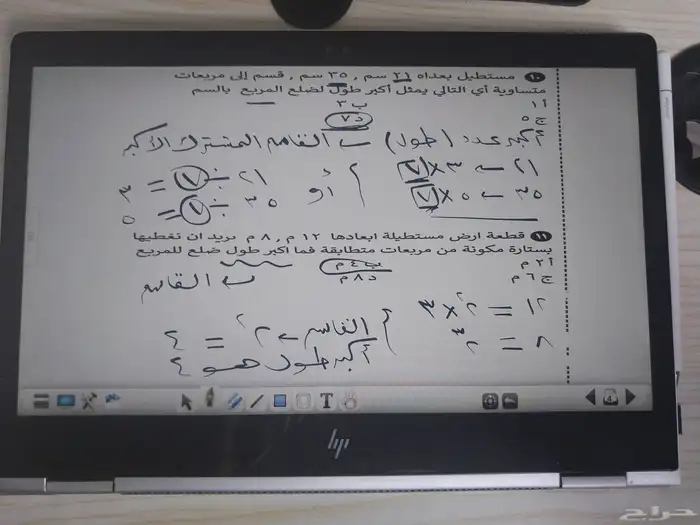 ١٠ مستطيل بعداه ٢١ سم , ٣٥ سم , قسم إلى مربعات
متساوية أي التالي يمثل أكبر طول لضلع المربع بالسم
أ ١ ب ٣
ج ٥ د ٧
أكبر عدد (طول) ← القاسم المشترك الأكبر
٢١ ← ٣ × ٧ أو ٢١ ÷ ٧ = ٣
٣٥ ← ٥ × ٧ ٣٥ ÷ ٧ = ٥
١١ قطعة ارض مستطيلة ابعادها ١٢ م , ٨ م نريد ان نغطيها
بستارة مكونة من مربعات متطابقة فما اكبر طول ضلع للمربع
أ ٢ م ب ٤ م
ج ٦ م د ٨ م ← القاسم
١٢ = ٢٢ × ٣
٨ = ٣٢ القاسم ← ٢٢ = ٤
أكبر طول هو ٤
T
4
hp
حراج